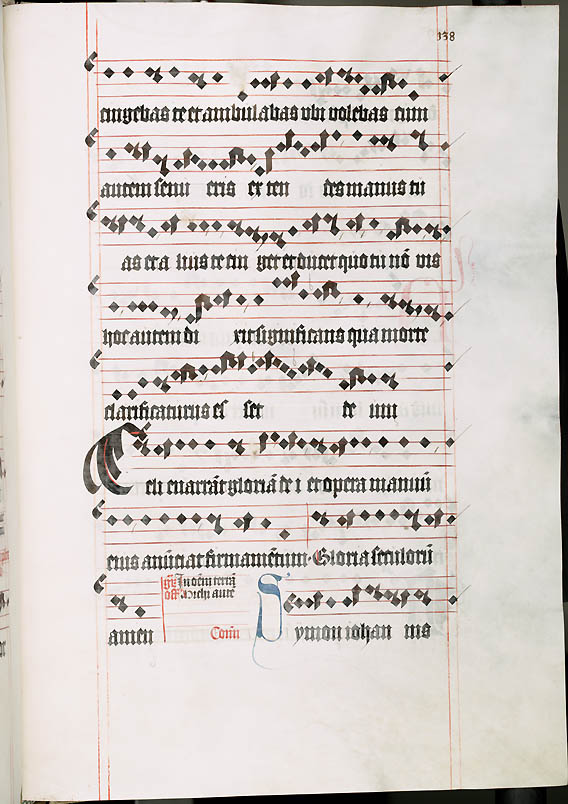 138
cingebas te et ambulabas vbi volebas cum
autem senu eris ex ten des manus tu
as et a lius te cin get et ducet quo tu nō vis
hoc autem di xit significans qua morte
clarificaturus es set de um
Celi enarrāt gloriā de i et opera manuū
eius anūciat firmamētum. Gloria seculorū
Gr̄ In oēm terrā
Off Michi autē
amen Com̄ Symon iohan nis